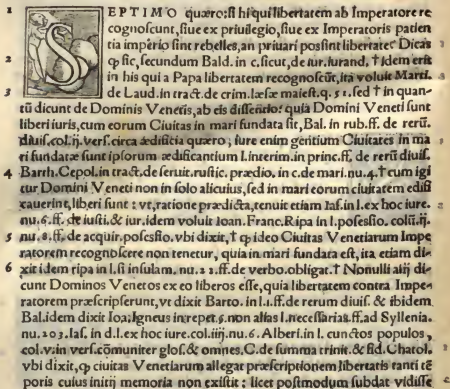 1 SEPTIMO quæro: si hi qui libertatem ab Imperatore re
cognoscunt, siue ex priuilegio, siue ex Imperatoris patien
tia imperio sint rebelles, an priuari possint libertate? Dicas
2 ꝙ sic, secundum Bald. in c. sicut, de iur. iurand. † Idem erit
in his qui a Papa libertatem recognoscũt, ita voluit Marti.
3 de Laud. in tract. de crim. læsæ maiest. q. 51. sed † in quan-
tũ dicunt de Dominis Venetis, ab eis dissentio: quia Domini Veneti sunt
liberi iuris, cum eorum Ciuitas in mari fundata sit, Bal. in rub. ff. de rerũ.
diuis. col. ij. vers. circa ædificia quæro; iure enim gentium Ciuitates in ma
ri fundatæ sunt ipsorum ædificantium l. interim. in princ. ff. de rerũ diuis.
4 Barth. Cepol. in tract. de seruit. rustic. prædio. in c. de mari. nu. 4. † cum igi
tur Domini Veneti non in solo alicuius, sed in mari eorum ciuitatem edifi
cauerint, liberi sunt: vt, ratione prædicta, tenuit etiam Ias. in l. ex hoc iure.
nu. 6. ff. de iusti. & iur. idem voluit Ioan. Franc. Ripa in l. possessio. colũ. ij.
5 nu. 8. ff. de acquir. possessio. vbi dixit, † ꝙ ideo Ciuitas Venetiarum Impe
ratorem recognoscere non tenetur, quia in mari fundata est, ita etiam di-
6 xit idem ripa in l. si insulam. nu. 21. ff. de verbo. obligat. † Nonnulli alij di-
cunt Dominos Venetos ex eo liberos esse, quia libertatem contra Impe-
ratorem præscripserunt, vt dixit Barto. in l. 1. ff. de rerum diuis. & ibidem
Bal. idem dixit Ioa; Igneus in repet. §. non alias l. necessarias. ff. ad Syllenia.
nu. 203. Ias. in d. l. ex hoc iure. col. iiij. nu. 6. Alberi. in l. cunctos populos,
col. v. in vers. cõmuniter glos. & omnes. C. de summa trinit. & fid. Chatol.
vbi dixit, ꝙ ciuitas Venetiarum allegat præscriptionem libertatis tanti tẽ
poris cuius initij memoria non existit: licet postmodum subdat vidisse